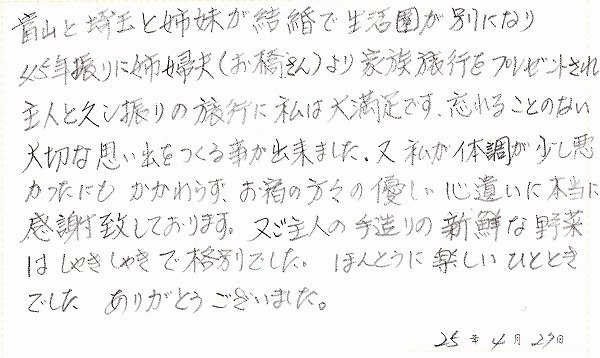 富山と埼玉と姉妹が結婚で生活圏が別になり
45年振りに姉婦夫(お橋さん)より家族旅行をプレゼントされ
主人と久ン振りの旅行に私は大満足です、忘れることのない
大切な思い出をつくる事が出来ました、又私が体調が少し悪
かったにもかかわらず、お宿の方々の優しい心遣いに本当に
感謝致しております。又ご主人の手造りの新鮮な野菜
はしゃきしゃきで格別でした。ほんとうに楽しいひととき
でした ありがとうございました。
25年4月29日